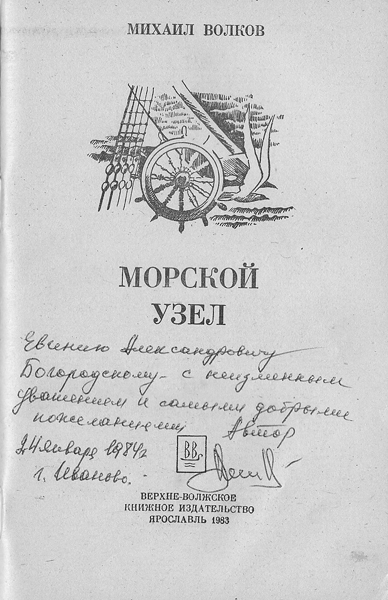 МИХАИЛ ВОЛКОВ
МОРСКОЙ
УЗЕЛ
Евгению Александровичу
Богородскому – с неизменным
уважением и самыми добрыми
пожеланиями Автор
24 января 1984 г
г. Иваново.
ВВ
ВЕРХНЕ-ВОЛЖСКОЕ
КНИЖНОЕ ИЗДАТЕЛЬСТВО
ЯРОСЛАВЛЬ 1983